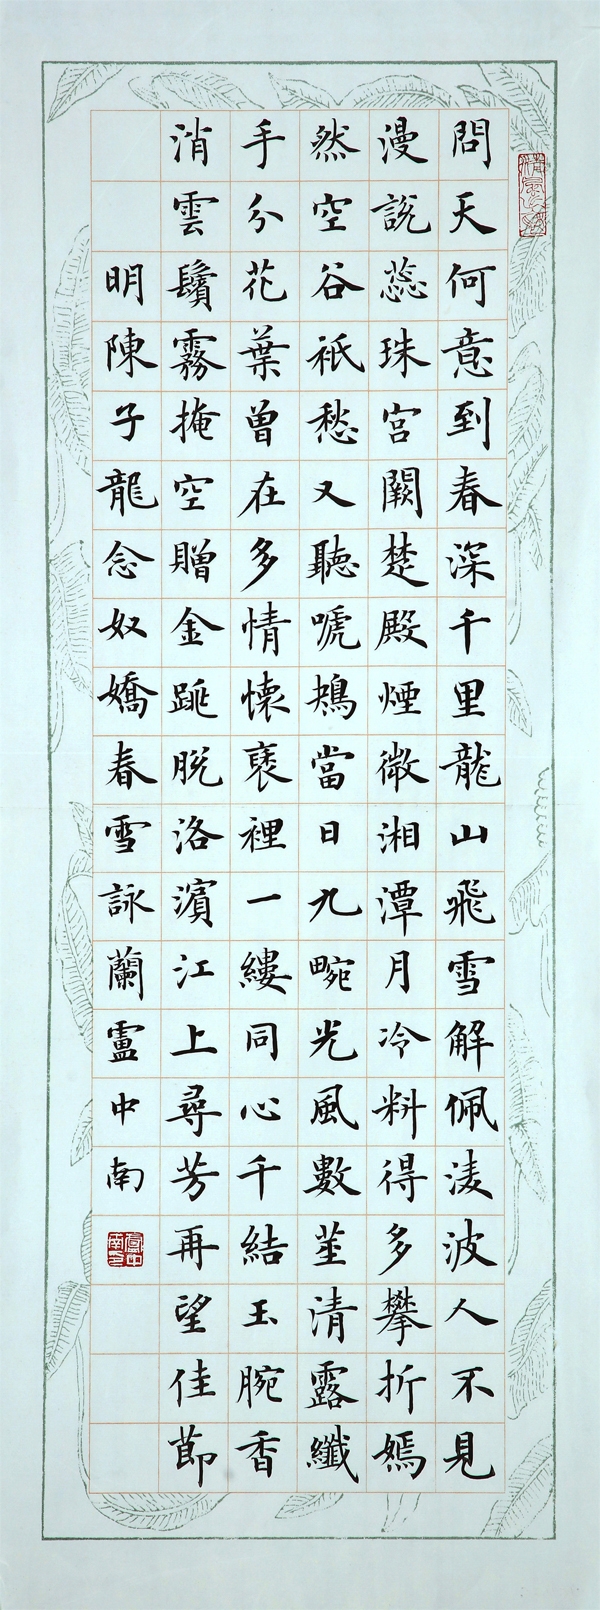 問天何意到春深千里龍山飛雪解佩淩波人不見
漫說蕊珠宮闕楚殿煙微湘潭月冷料得多攀折嫣
然空谷祇愁又聽嗁鴂當日九畹光風數莖清露纖
手分花葉曾在多情懷褎裡一縷同心千結玉腕香
消雲鬢霧掩空贈金跳脫洛濱江上尋芳再望佳節
明陳子龍念奴嬌春雪詠蘭盧中南